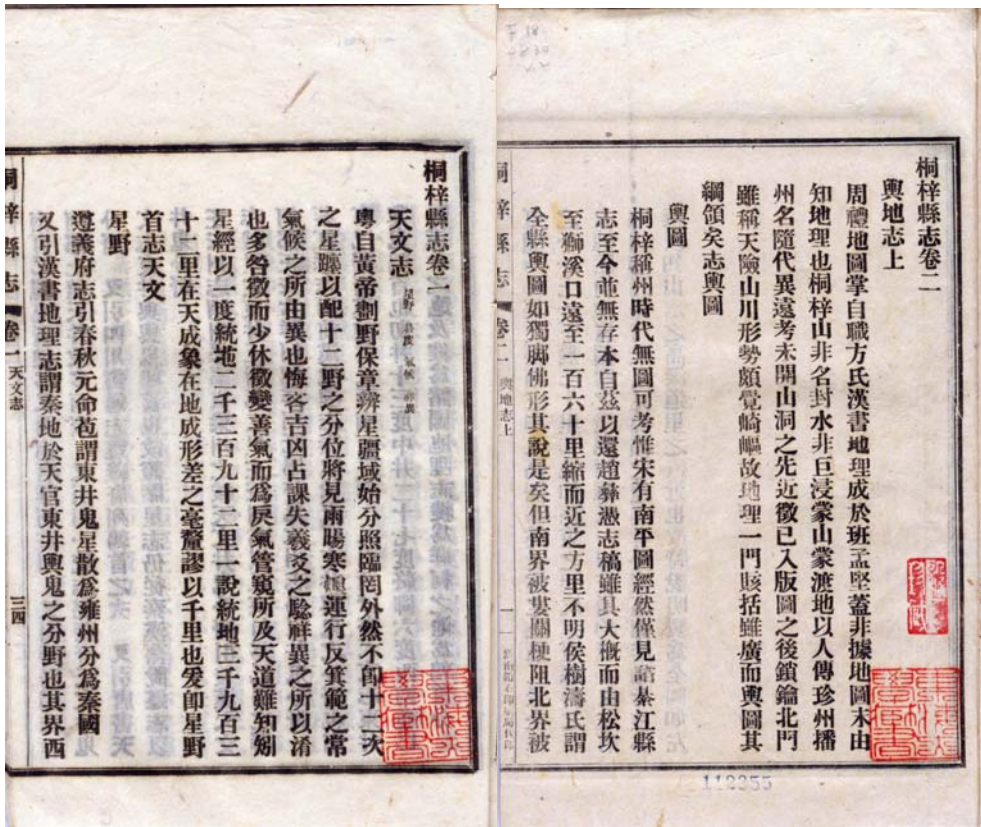 桐梓縣志卷二
輿地志上
周禮地圖掌自職方氏漢書地理成於班孟堅蓋非據地圖末由
知地理也桐梓山非名封水非巨浸蒙山蒙渡地以人傳珍州播
州名隨代異遠考未開山洞之先近徵已入版圖之後鎖鑰北門
雖稱天險山川形勢頗覺崎嶇故地理一門賅括雖廣而輿圖其
綱領矣志輿圖
輿圖
桐梓稱州時代無圖可考惟宋有南平圖經然僅見諸綦江縣
志至今並無存本自茲以還趙彝憑志稿雖具大概而由松坎
至獅溪口遠至一百六十里縮而近之方里不明侯樹濤氏謂
全縣輿圖如獨腳佛形其說是矣但南界被婁關梗阻北界被
桐梓縣志
卷二
輿地志上
一
112355
桐梓縣志卷一
天文志
星野
氣候
祥異
粵自黃帝劃野保章辨星疆域始分照臨罔外然不卽十二次
之星躔以配十二野之分位將見雨暘寒燠運行反箕範之常
氣候之所由異也悔吝吉凶占課失義爻之驗祥異之所以淆
也多咎徵而少休徵變善氣而爲戾氣管窺所及天道難知矧
星經以一度統地二千三百九十二里一說統地三千九百三
十二里在天成象在地成形差之毫釐謬以千里也爰卽星野
首志天文
星野
遵義府志引春秋元命苞謂東井鬼星散爲雍州分爲秦國
又引漢書地理志謂秦地於天官東井輿鬼之分野也其界西
桐梓縣志
卷一
天文志
三四